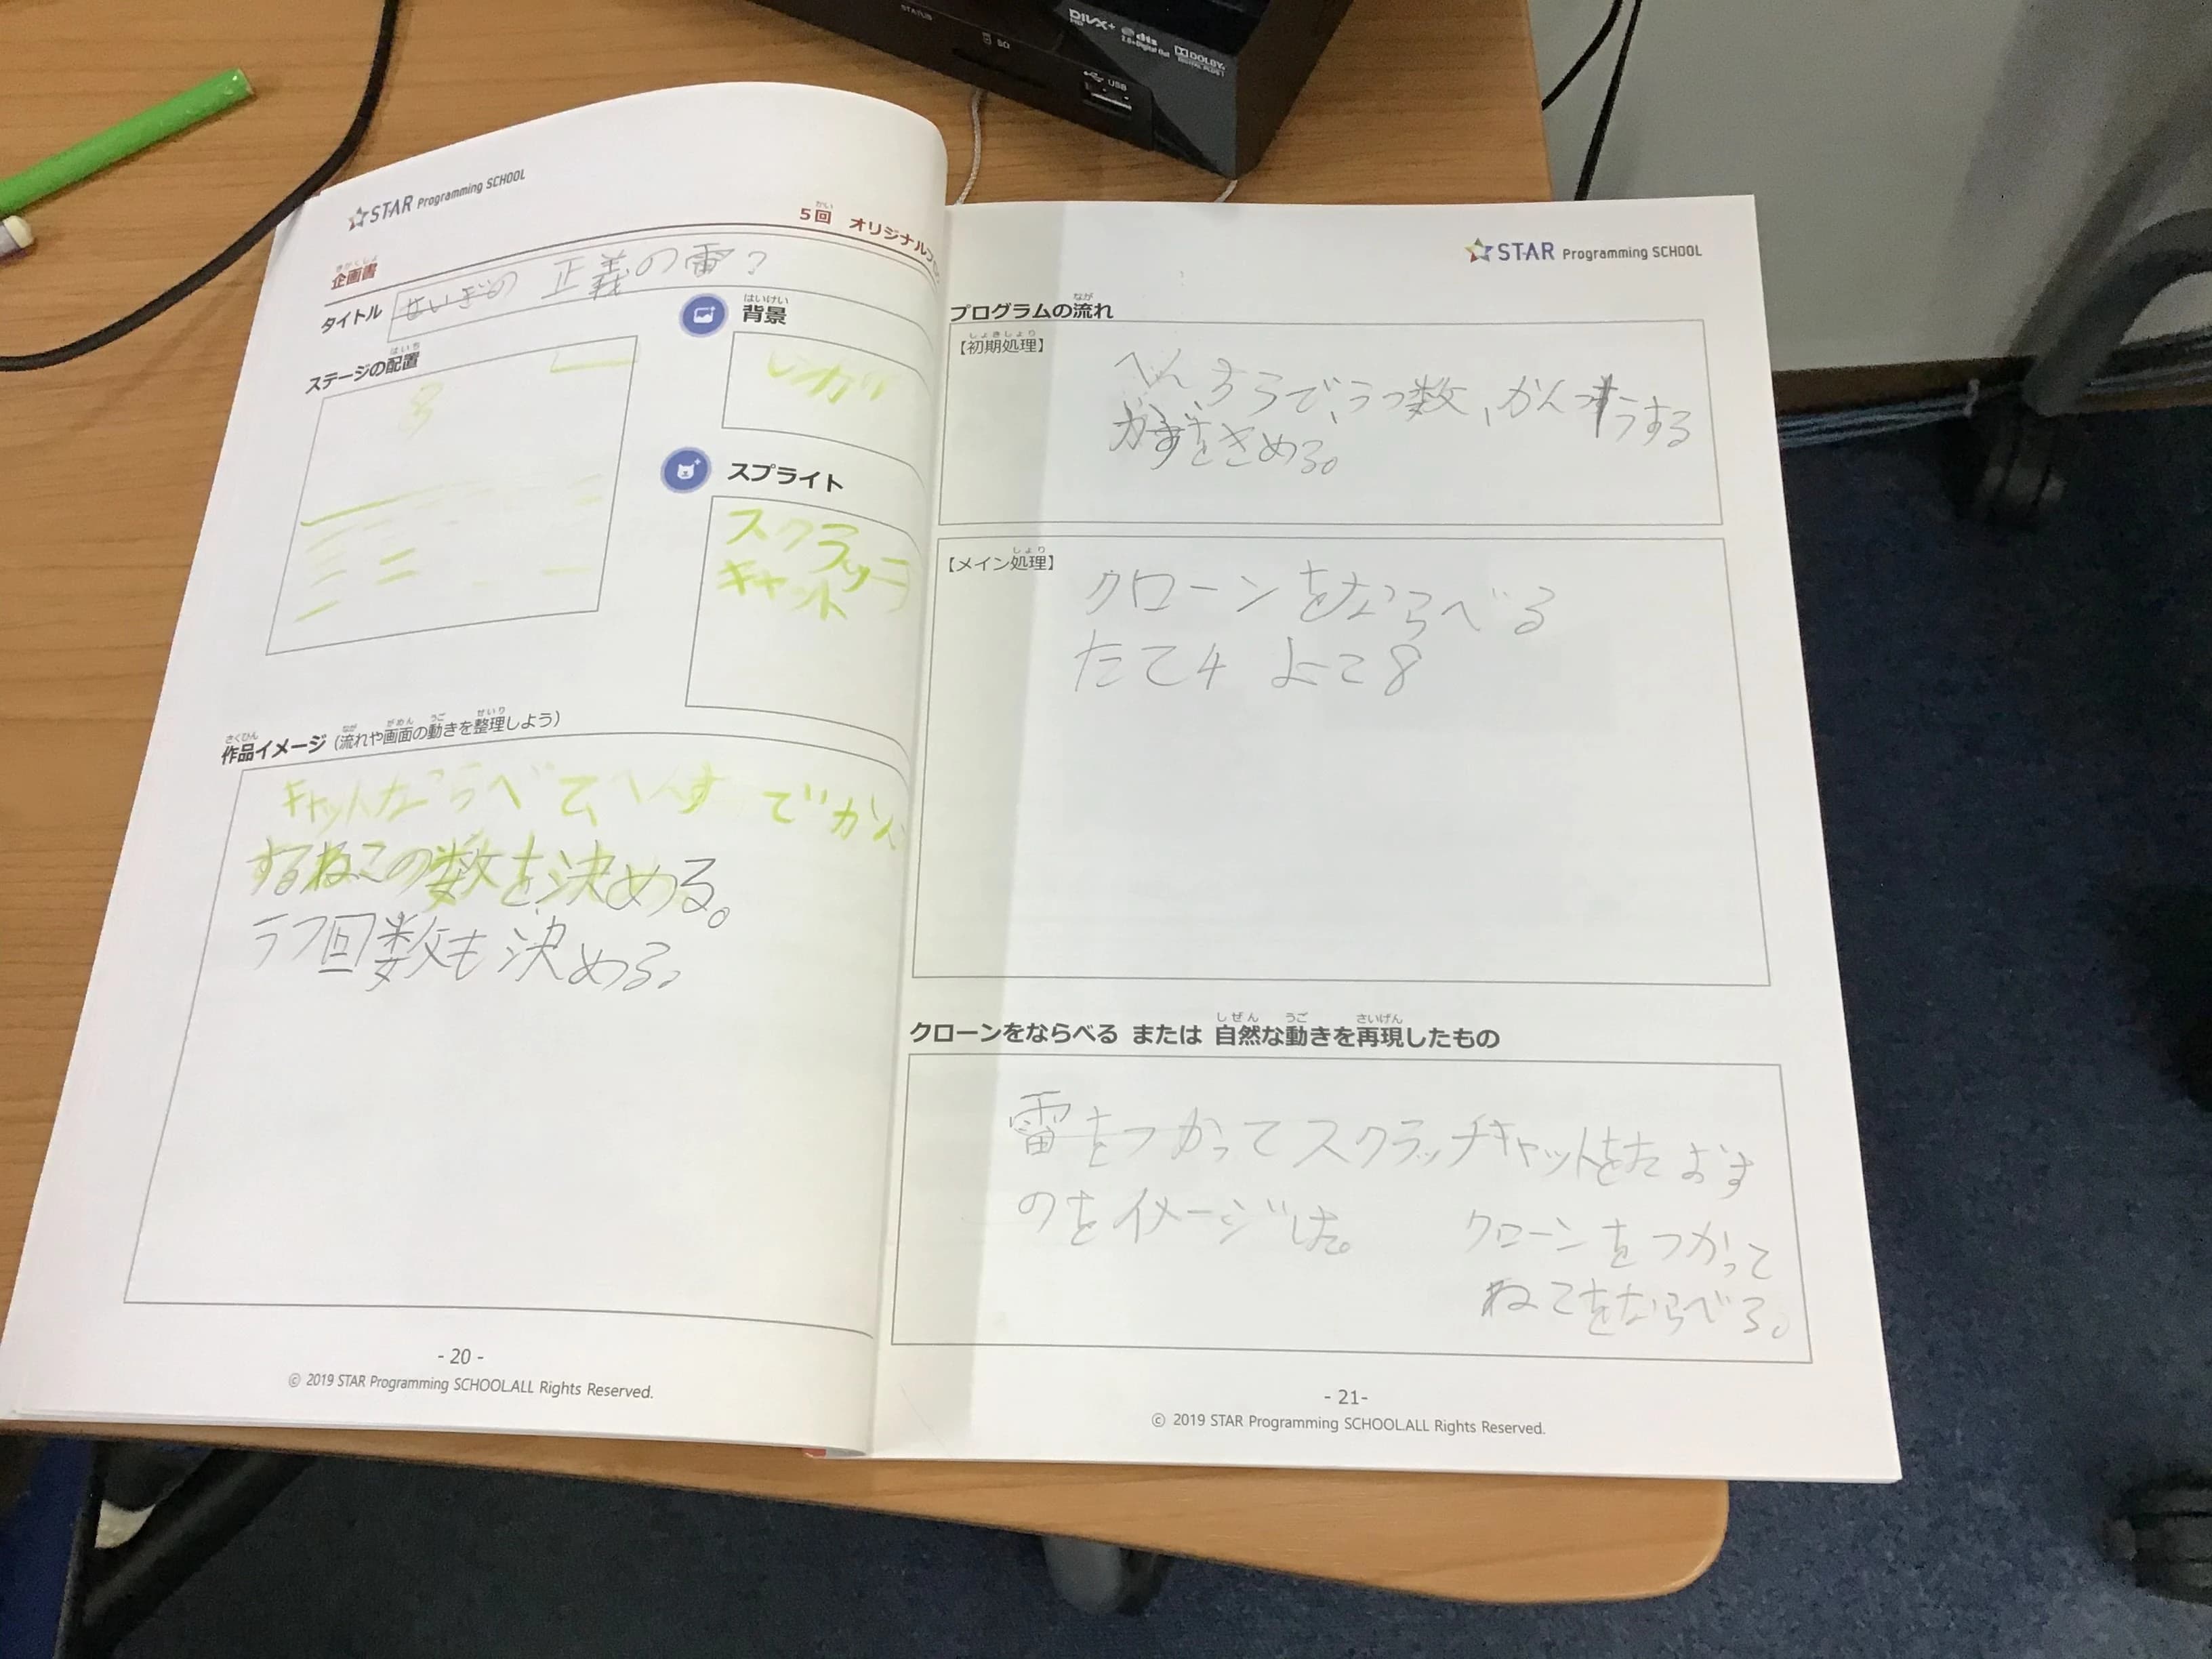 STATUS
SD
DIVX+
HD
dts
2.0+Digital Out
DOLBY
DIGITAL PLUS
USB
STAR Programming SCHOOL
かい
5回 オリジナル
きかくしょ
企画書
タイトル せいぎの 正義の雷?
はいち
ステージの配置
はいけい
背景
レンガ
スプライト
スクラッチ
キャット
さくひん なが がめん うご せいり
作品イメージ(流れや画面の動きを整理しよう)
キャットならべて、へんすうでかん
するねこの数を決める。
うつ回数も決める。
- 20 -
© 2019 STAR Programming SCHOOL.ALL Rights Reserved.
STAR Programming SCHOOL
なが
プログラムの流れ
しょきしょり
【初期処理】
へんすうで、うつ数、かんつうする
かずをきめる。
しょり
【メイン処理】
クローンをならべる
たて4 よこ8
しぜん うご さいげん
クローンをならべる または 自然な動きを再現したもの
雷をつかってスクラッチキャットをたおす
のをイメージした。
クローンをつかって
ねこをならべる。
- 21-
© 2019 STAR Programming SCHOOL.ALL Rights Reserved.